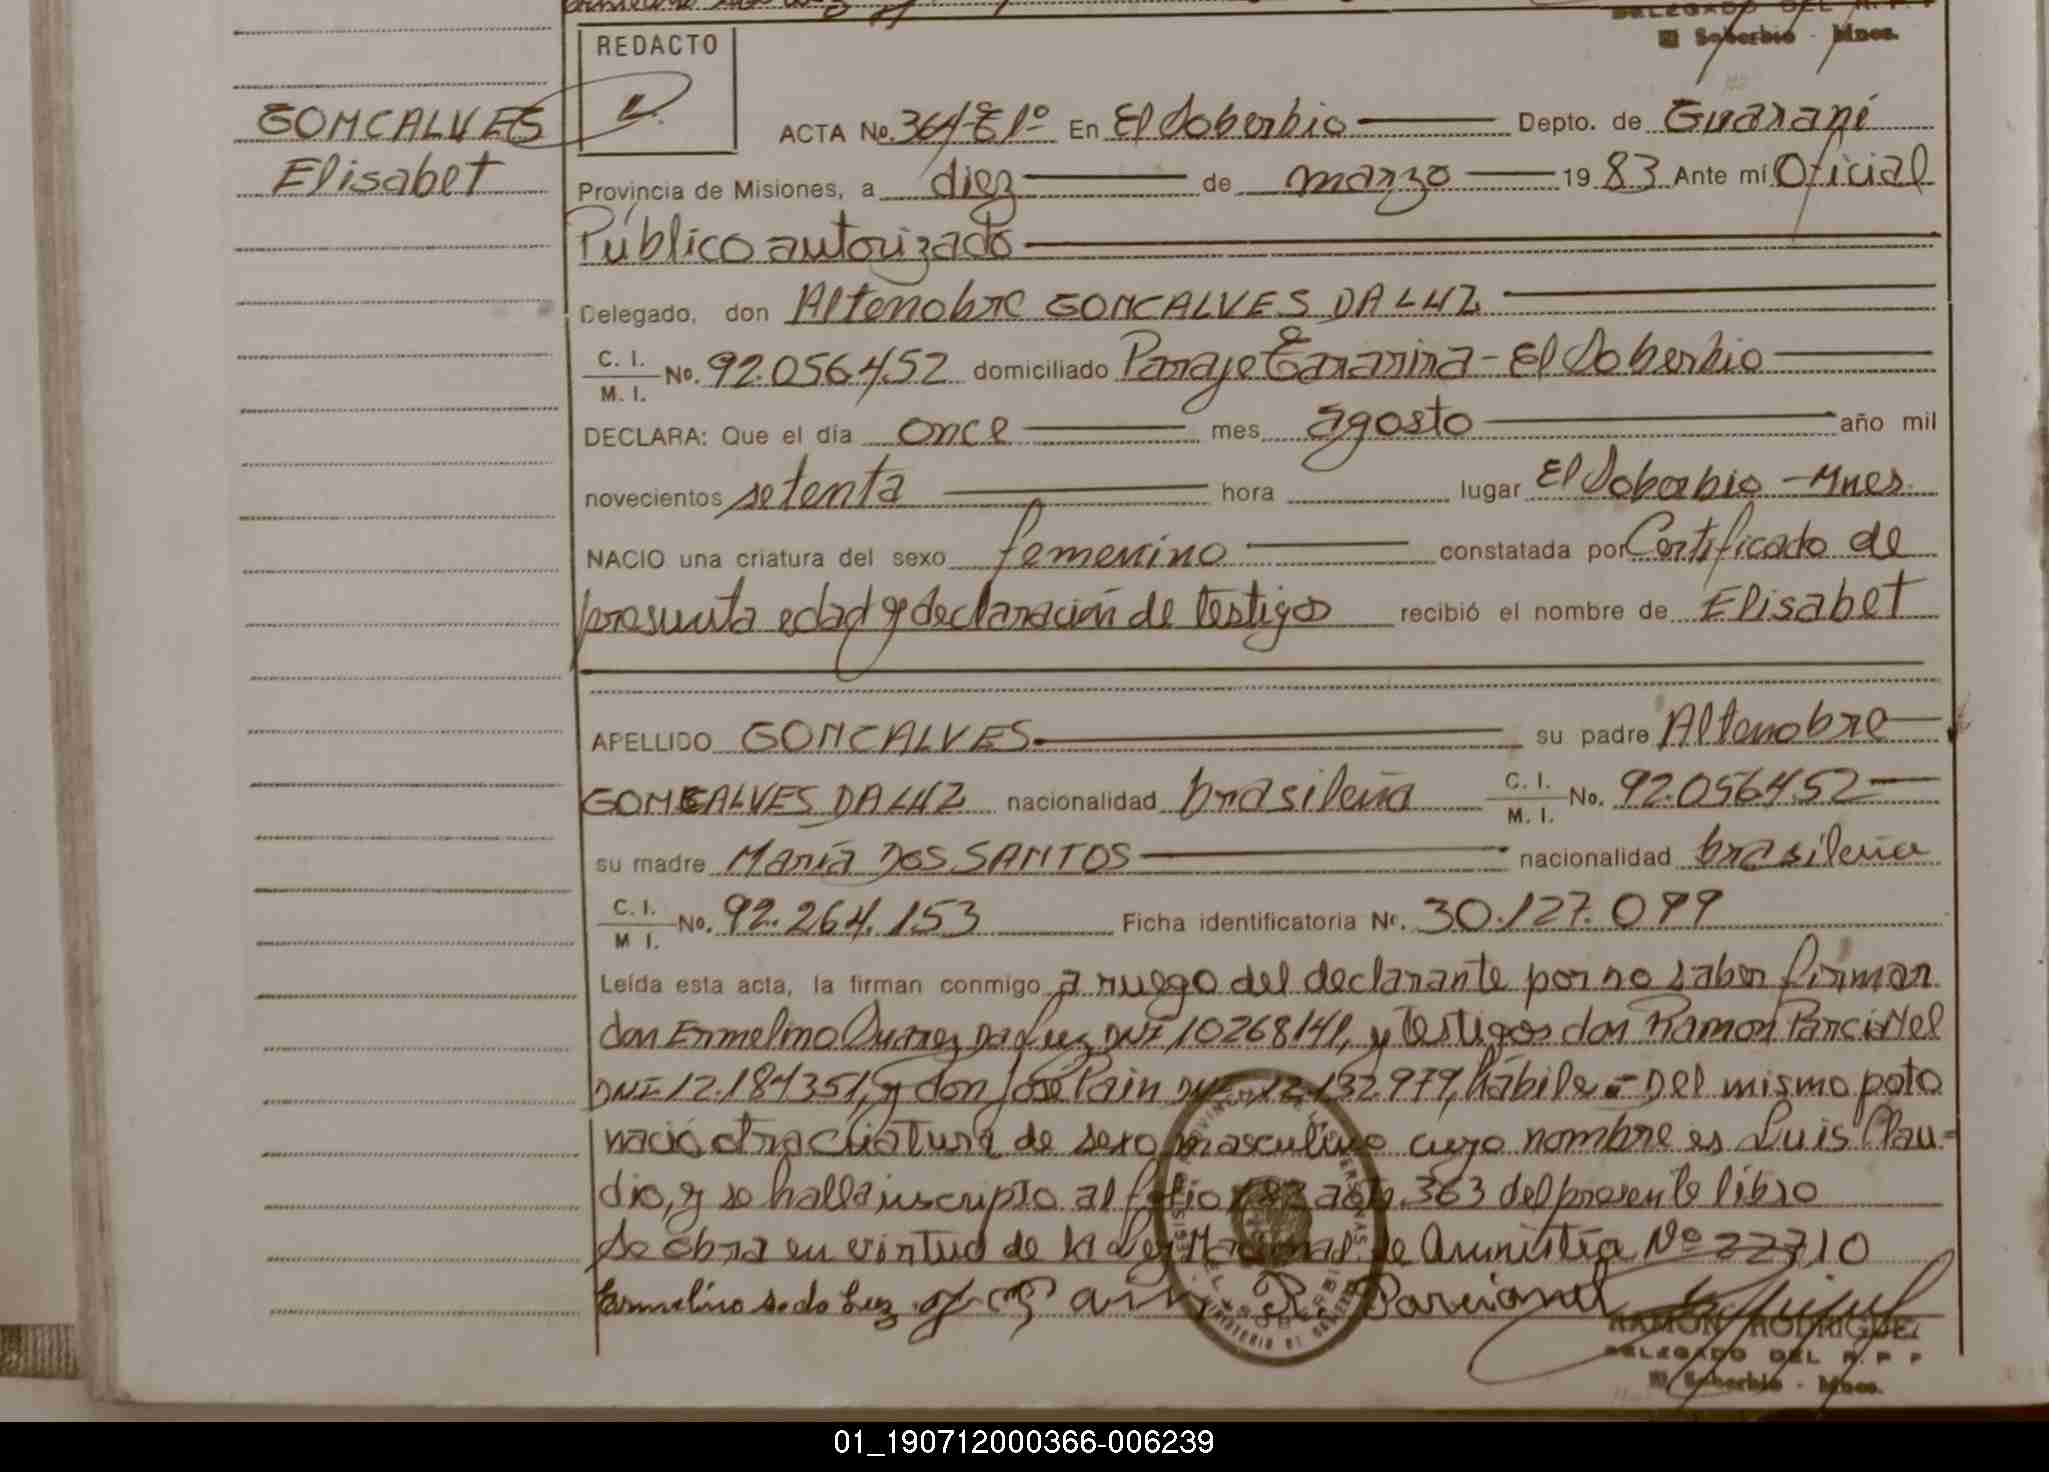 DELEGADO DEL R. P. P.
El Soberbio - Mnes.
REDACTO
GONCALVES
Elisabet
ACTA No. 364-Eº En El Soberbio Depto. de Guaraní
Provincia de Misiones, a diez de marzo 1983 Ante mí Oficial
Público autorizado
Delegado, don Altenobre GONCALVES DA LUZ
C. I.
M. I. No. 92.056452 domiciliado Paraje - El Soberbio
DECLARA: Que el día once mes agosto año mil
novecientos setenta hora lugar El Soberbio - Mnes.
NACIO una criatura del sexo femenino constatada por Certificado de
presunta edad y declaración de testigos recibió el nombre de Elisabet
APELLIDO GONCALVES su padre Altenobre
GONCALVES DA LUZ nacionalidad brasileña C. I.
M. I. No. 92.056452
su madre María DOS SANTOS nacionalidad brasileña
C. I.
M I. No. 92.264.153 Ficha identificatoria No. 30.127.099
Leída esta acta, la firman conmigo a ruego del declarante por no saber firmar
don Ermelino Da Luz DNI 10268141, y testigos don Ramon
DNI 12.184351, y don José Pain 12.132.979, hábiles - Del mismo parto
nació otra criatura de sexo masculino cuyo nombre es Luis Clau=
dio, y se halla inscripto al folio 182 acta 363 del presente libro
Se obra en virtud de la Ley Nacional de Amnistía Nº 22710
Ermelino s. da Luz
RAMÓN RODRIGUEZ
DELEGADO DEL R. P. P.
El Soberbio - Mnes.
01_190712000366-006239